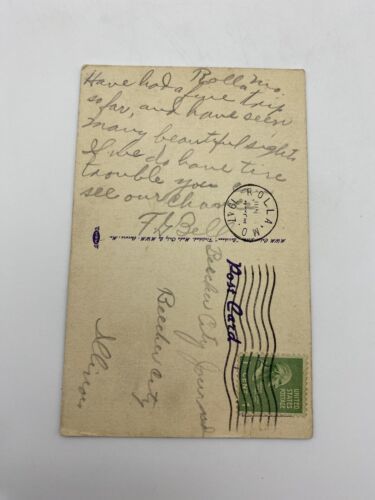 Rolla Mo.
Have had a fine trip
so far, and have seen
many beautiful sights
If we do have tire
trouble you
see our chan
T L Bell
ROLLA
MO.
JUN
Post Card
Beecher City Journal
Beecher City
Illinois
UNITED
STATES
POSTAGE
1 CENT 1